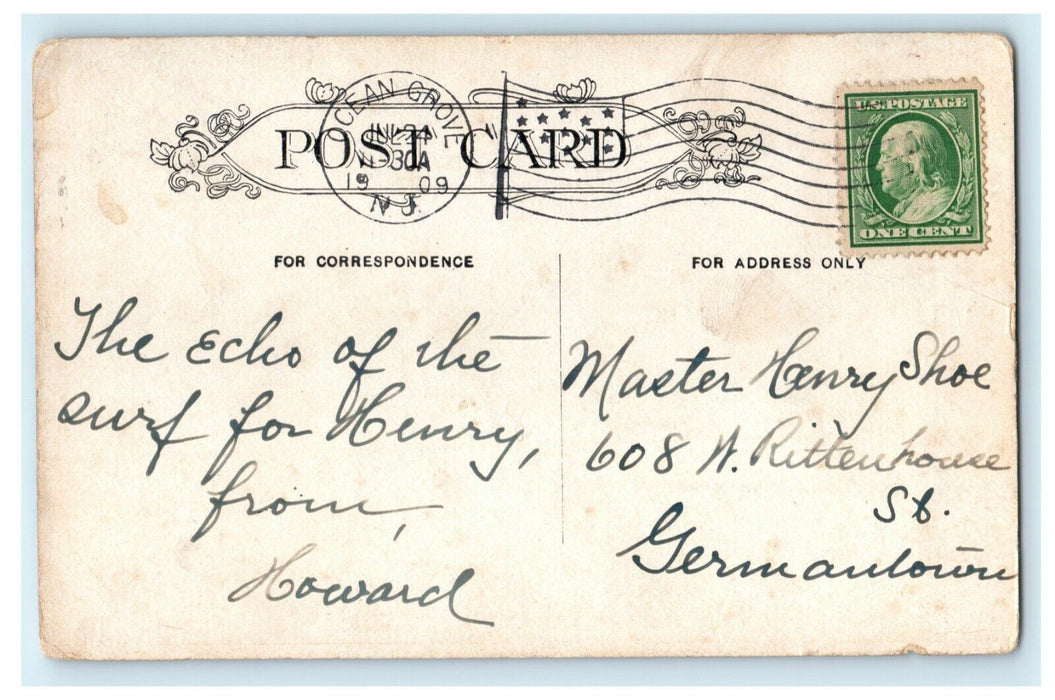 POST CARD
OCEAN GROVE
30A
1909
N.J.
U.S. POSTAGE
ONE CENT
FOR CORRESPONDENCE
FOR ADDRESS ONLY
The Echo of the
surf for Henry,
from,
Howard
Master Henry Shoe
608 W. Rittenhouse
St.
Germantown